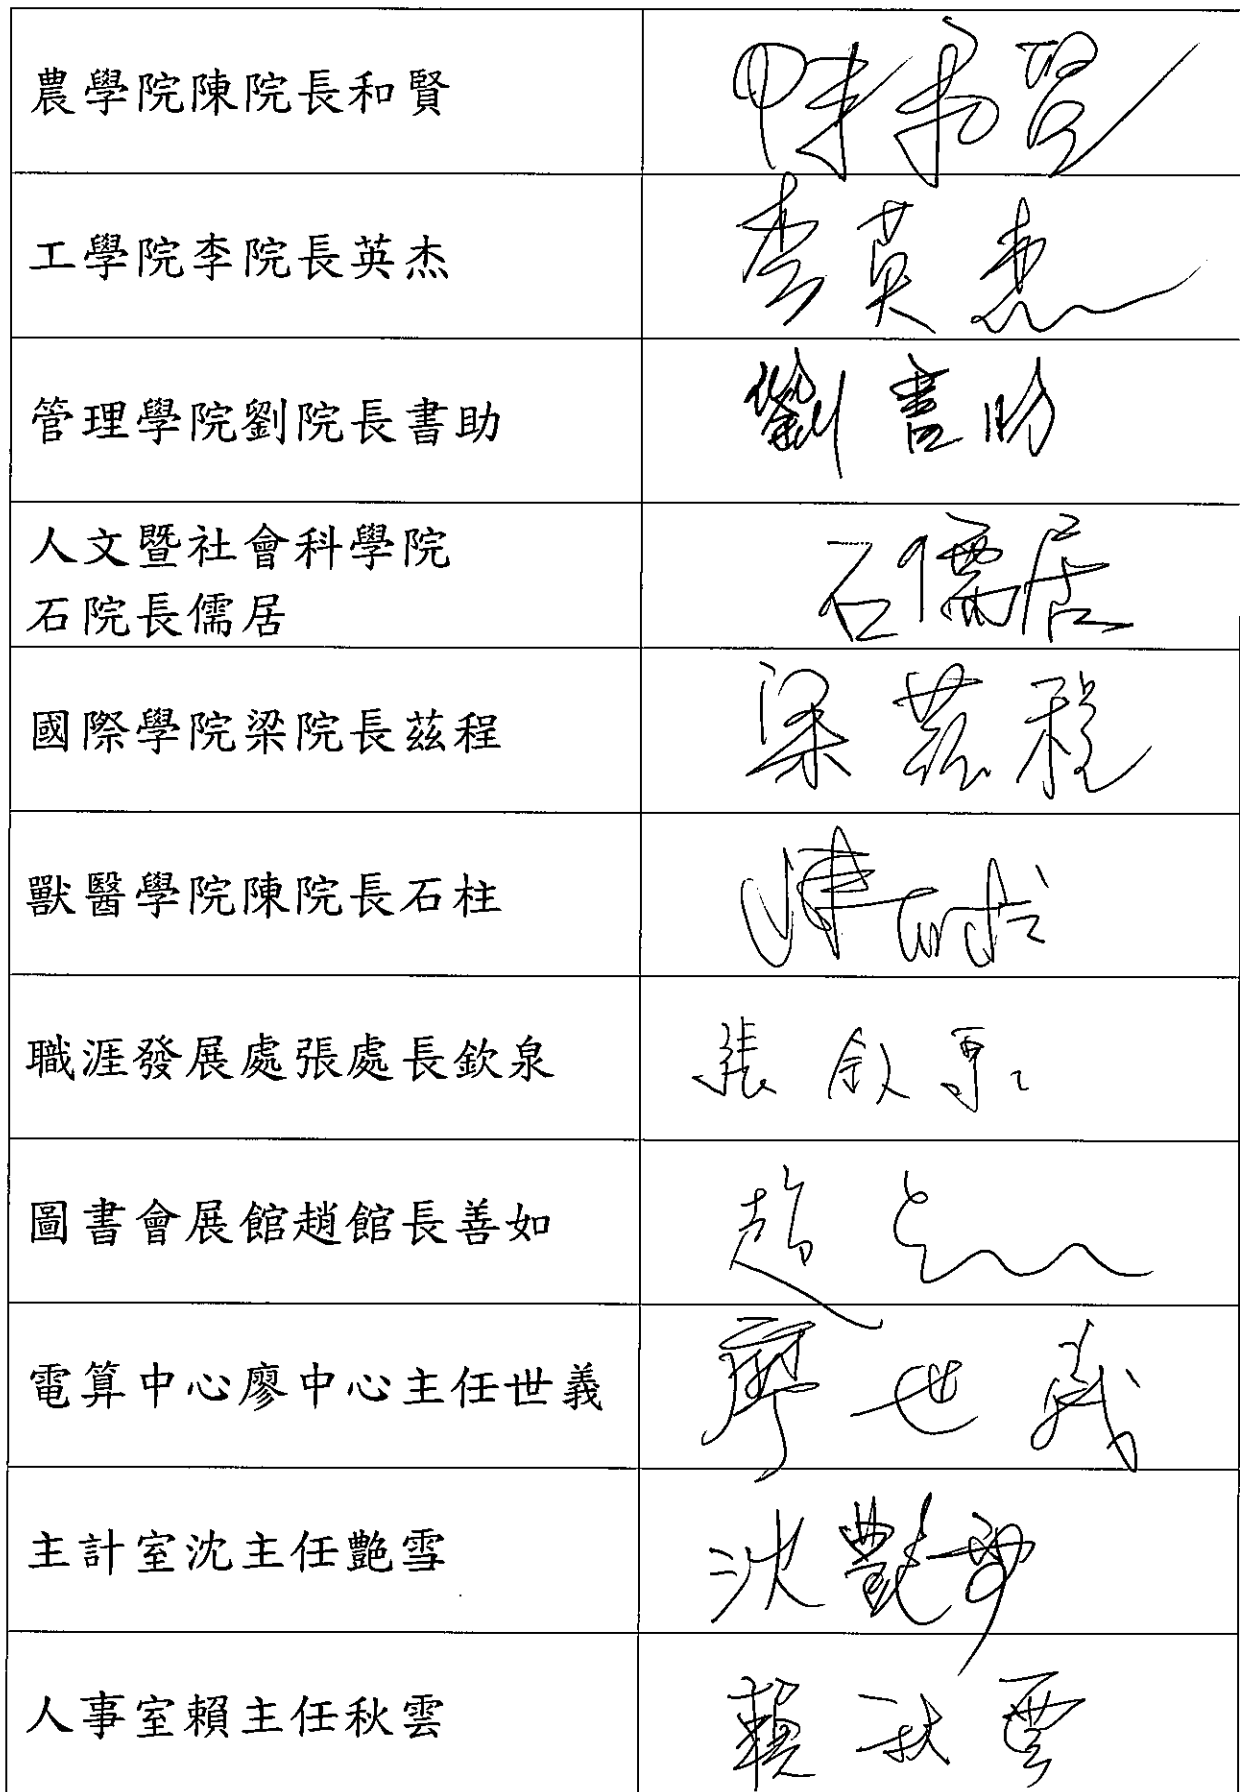 農學院陳院長和賢
陳和賢
工學院李院長英杰
李英杰
管理學院劉院長書助
劉書助
人文暨社會科學院
石院長儒居
石儒居
國際學院梁院長茲程
梁茲程
獸醫學院陳院長石柱
陳石柱
職涯發展處張處長欽泉
張欽泉
圖書會展館趙館長善如
趙
電算中心廖中心主任世義
廖世義
主計室沈主任艷雪
沈艷雪
人事室賴主任秋雲
賴秋雲